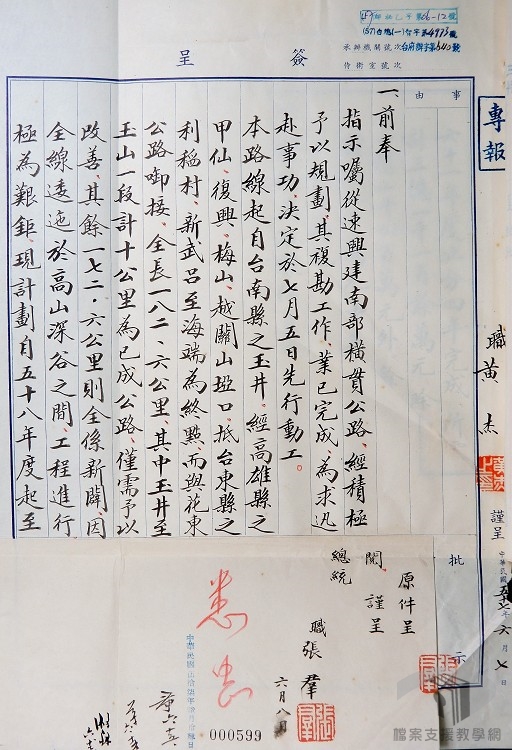 (57)台統(一)智字第4973號
承辦機關號次台府辦字第540號
侍衛室號次
簽呈
專報
事由
一、前奉
指示囑從速興建南部橫貫公路、經積極
予以規劃、其複勘工作、業已完成、為求迅
赴事功、決定於七月五日先行動工。
本路線起自台南縣之玉井、經高雄縣之
甲仙、復興、梅山、越關山埡口、抵台東縣之
利稻村、新武呂至海端為終點、而與花東
公路啣接、全長一八二.六公里、其中玉井至
玉山一段計十公里為已成公路、僅需予以
改善、其餘一七二.六公里則全係新闢、因
全線逶迤於高山深谷之間、工程進行
極為艱鉅、現計劃自五十八年度起至
職黃杰
謹呈
中華民國五十七年六月七日
批示
原件呈
閱 謹呈
總統
職張羣
六月八日
悉
000599
檔案支援教學網